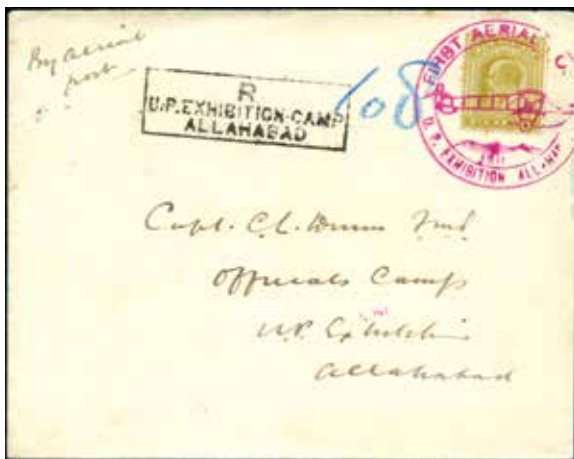 By aerial
post
R
U.P. EXHIBITION-CAMP
ALLAHABAD
108
FIRST AERIAL
1911
U. P. EXHIBITION ALL-HABAD
Capt. C.L.
Officials Camp
U.P. Exhibition
Allahabad